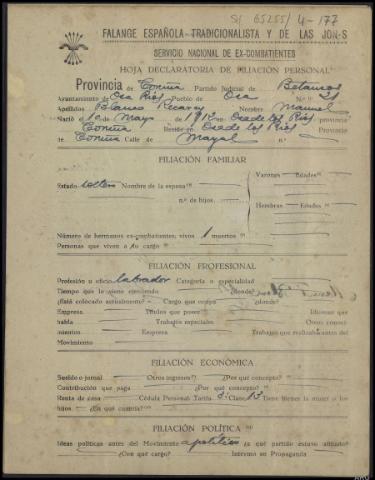 SH 65255/4-177
FALANGE ESPAÑOLA TRADICIONALISTA Y DE LAS JON-S
SERVICIO NACIONAL DE EX-COMBATIENTES
HOJA DECLARATORIA DE FILIACIÓN PERSONAL
Provincia de Coruña Partido Judicial de Betanzos
Ayuntamiento de Oza Ríos Pueblo de Oza N.º
Apellidos Blanco Nombre Manuel
Nació el 10 de Mayo de 1912 en Oza de los Ríos provincia
Coruña Reside en Oza de los Ríos provincia
de Coruña Calle de n.º
FILIACIÓN FAMILIAR
Varones Edades
Estado soltero Nombre de la esposa
n.º de hijos
Hembras Edades
Número de hermanos ex-combatientes, vivos 1 muertos
Personas que viven a su cargo
FILIACIÓN PROFESIONAL
Profesión u oficio labrador Categoría o especialidad
Tiempo que la viene ejerciendo Dónde
¿Está colocado actualmente? Cargo que ocupa ¿Dónde?
Empresa Títulos que posee Idiomas que
habla Trabajos especiales Otros conoci-
mientos Empresa Trabajos que realizaba antes del
Movimiento
FILIACIÓN ECONÓMICA
Sueldo o jornal Otros ingresos? ¿Por qué concepto?
Contribución que paga ¿Por qué concepto?
Renta de casa Cédula Personal Tarifa 3ª Clase 13 Tiene bienes la mujer o los
hijos ¿En qué cuantía?
FILIACIÓN POLÍTICA
Ideas políticas antes del Movimiento apolítico ¿a qué partido estuvo afiliado?
¿Con qué cargo? Intervino en Propaganda